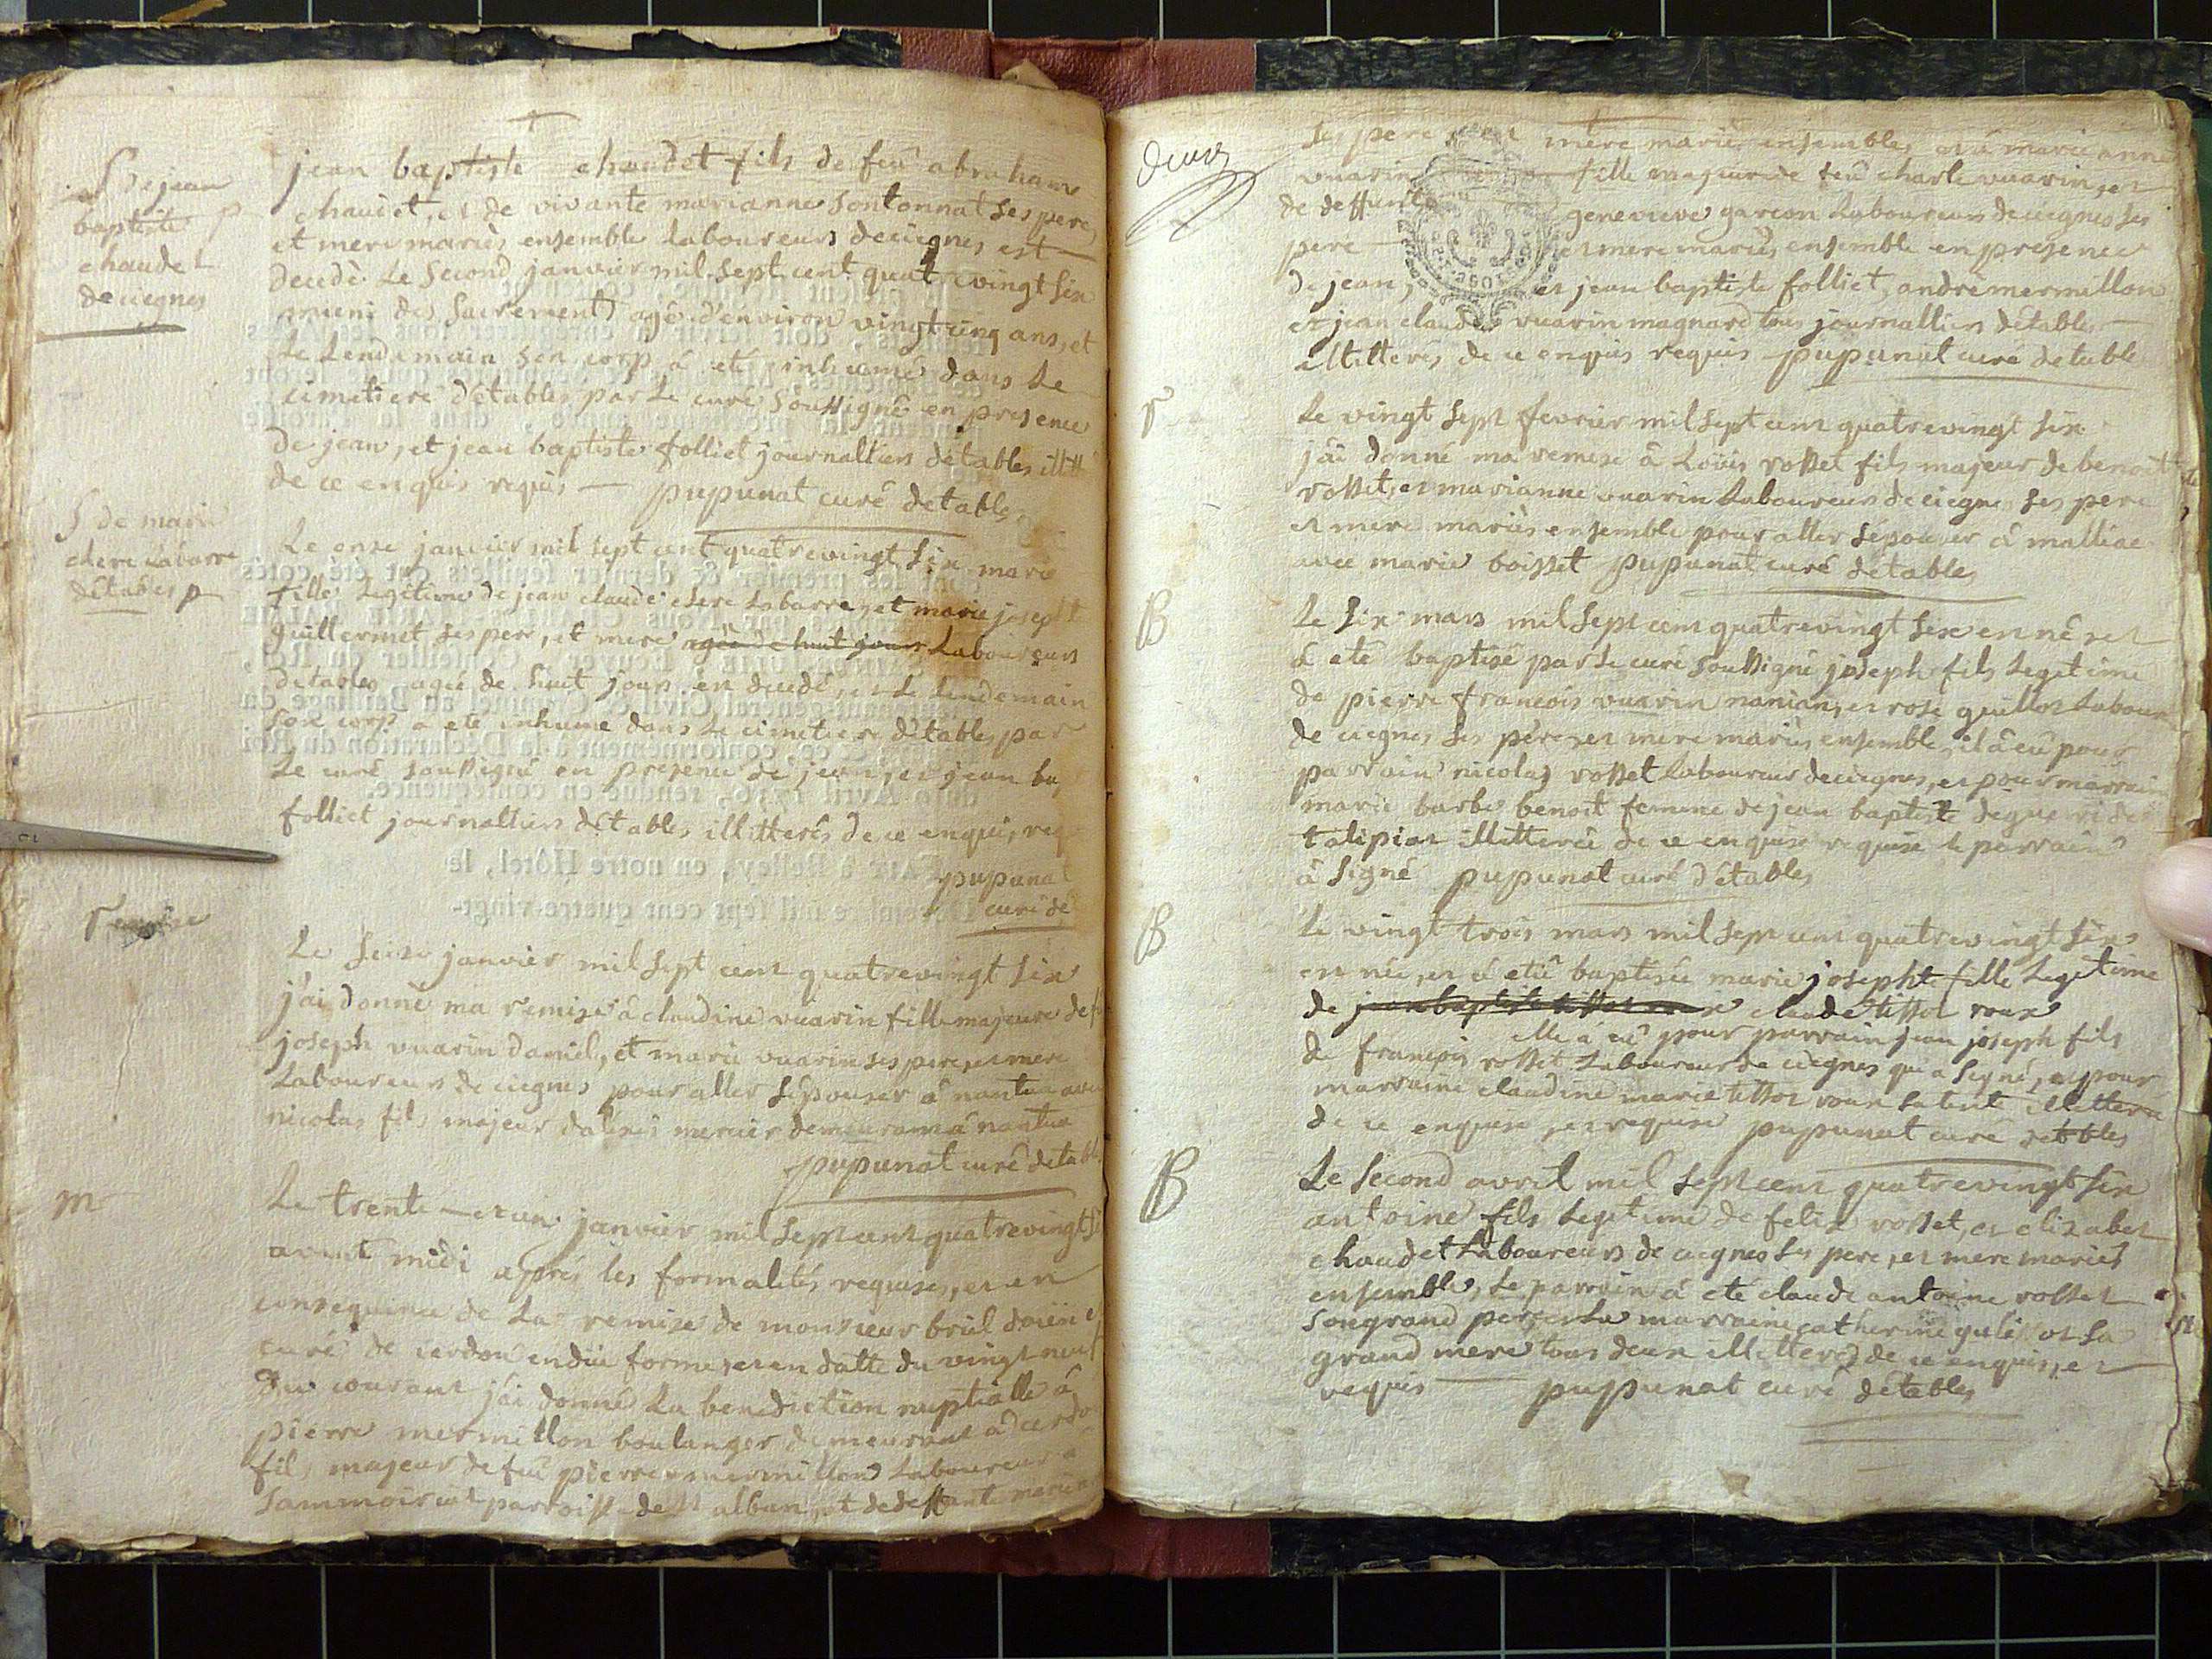 S de jean
baptiste p
chaudet
de ciegnes
jean baptiste chaudet fils de feû abraham
chaudet, et de vivante marianne sontonnat ses pere,
et mere mariès ensemble laboureurs de ciegnes est
decedè le second janvier mil sept cent quatrevingt six
muni des sacrements agé d'environ vingt cinq ans, et
le lendemain son corp à eté inhumé dans le
cimetiere d'étables par le curé soussigné en presence
de jean, et jean baptiste folliet journalliers détables illitt
de ce enquis requis — pupunat curé detables
S de marie
clere labarre
détables p
Le onse janvier mil sept cent quatrevingt six marie
fille legitime de jean claude clere labarre, et marie joseph
guillermet ses pere, et mere agée de huit jours laboureurs
détables agée de huit jours en decedé, et le lendemain
son corp a eté inhumé dans le cimetiere d'étables par
le curé soussigné en presence de jean, et jean ba
folliet journalliers détables illitterés de ce enquis, req
pupunat
curé de
remise
Le seise janvier mil sept cent quatrevingt six
j'ai donné ma remise à claudine vuarin fille majeure de f
joseph vuarin daniel, et marie vuarin ses pere, et mere
laboureurs de ciegnes pour aller s'épouser à nantua avec
nicolas fils majeur d'alexis mercier demeurant à nantua
pupunat curé détabl
m
Le trente — et un janvier mil sept cent quatrevingt s
avant midi après les formalités requises, et en
consequence de la remise de monsieur bril
curé de cerdon en düe forme, et en datte du vingt neuf
du courant j'ai donné la benediction nuptialle à
pierre mermillon boulanger demeurant à cerdo
fils majeur de feû pierre mermillon laboureur à
parroisse de st alban, et de deffunte marie
deux
ses pere et mere mariès ensembles et à marie anne
vuarin fille majeure de feû charle vuarin, et
de deffunte genevieve garcon laboureurs de ciegnes ses
pere et mere mariès, ensemble en presence
de jean, et jean baptiste folliet, andrè mermillon
et jean claude vuarin magnard tous journalliers détables
illitterés de ce enquis requis pupunat curé detable
r
Le vingt sept fevrier mil sept cent quatrevingt six
j'ai donné ma remise à Loüis rosset fils majeur de benoit
rosset, et marianne vuarin laboureurs de ciegnes ses pere
et mere mariès ensemble pour aller s'épouser à malliac
avec marie boisset pupunat curé détables
B
Le six mars mil sept cent quatrevingt six en né, et
à eté baptisé par le curé soussigné joseph fils legitime
de pierre francois vuarin nanian, et rose guillot labour
de ciegnes ses pere, et mere mariès ensemble, il à eû pour
parrain nicolas rosset laboureur de ciegnes, et pour marraine
marie barbe benoit femme de jean baptiste
illitterée de ce enquise requise le parrain
à signé pupunat curé d'étables
B
Le vingt trois mars mil sept cent quatrevingt six
en née, et à eté baptisée marie josephte fille legitime
de jean baptiste tissot roux claude tissot roux
elle à eû pour parrain jean joseph fils
de francois rosset laboureur de ciegnes qui a signé, et pour
marraine claudine marie tissot roux sa tente illitterée
de ce enquise, et requise pupunat curé detables
B
Le second avril mil sept cent quatrevingt six
antoine fils legitime de felix rosset, et elizabet
chaudet laboureurs de ciegnes ses pere, et mere mariès
ensemble, le parrain à eté claude antoine rosset
son grand pere, et la marraine catherine guliot sa
grand mere tous deux illitterés de ce enquis, et
requis — pupunat curé détables